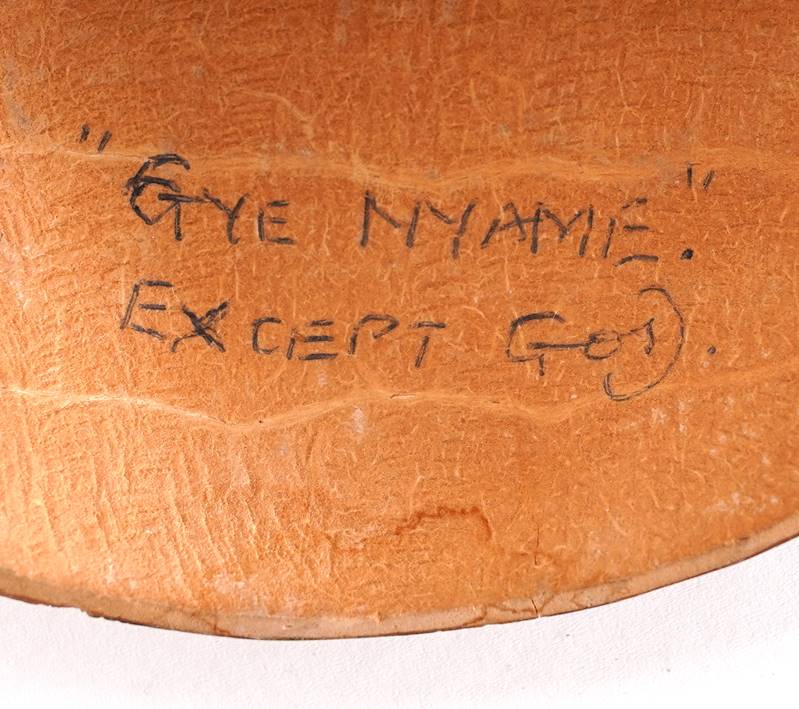 "GYE NYAME."
EXCEPT GOD.